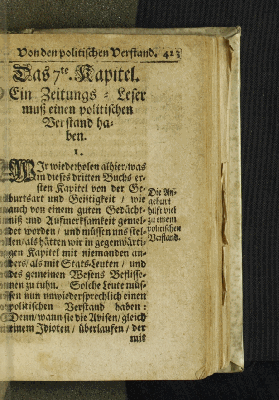 Von den politischen Verstand. 413
Das 7te. Kapitel.
Ein Zeitungs-Leser
muß einen politischen
Verstand ha-
ben.
1.
WIr wiederholen alhier/ was
in dieses dritten Buchs er-
sten Kapitel von der Ge-
burtsart und Geistigkeit / wie
auch von einem guten Gedächt-
niß und Aufmerksamkeit gemel-
det worden / und müssen uns stel-
len/ als hätten wir in gegenwärti-
gen Kapitel mit niemanden an-
ders/ als mit Stats-Leuten / und
des gemeinen Wesens Beflisse-
nen zu tuhn. Solche Leute müs-
sen nun unwiedersprechlich einen
politischen Verstand haben:
Denn/ wann sie die Avisen/ gleich
einem Idioten / überlaufen / der
mit
Die An-
geburt
hilft viel
zu einem
politischen
Verstand.